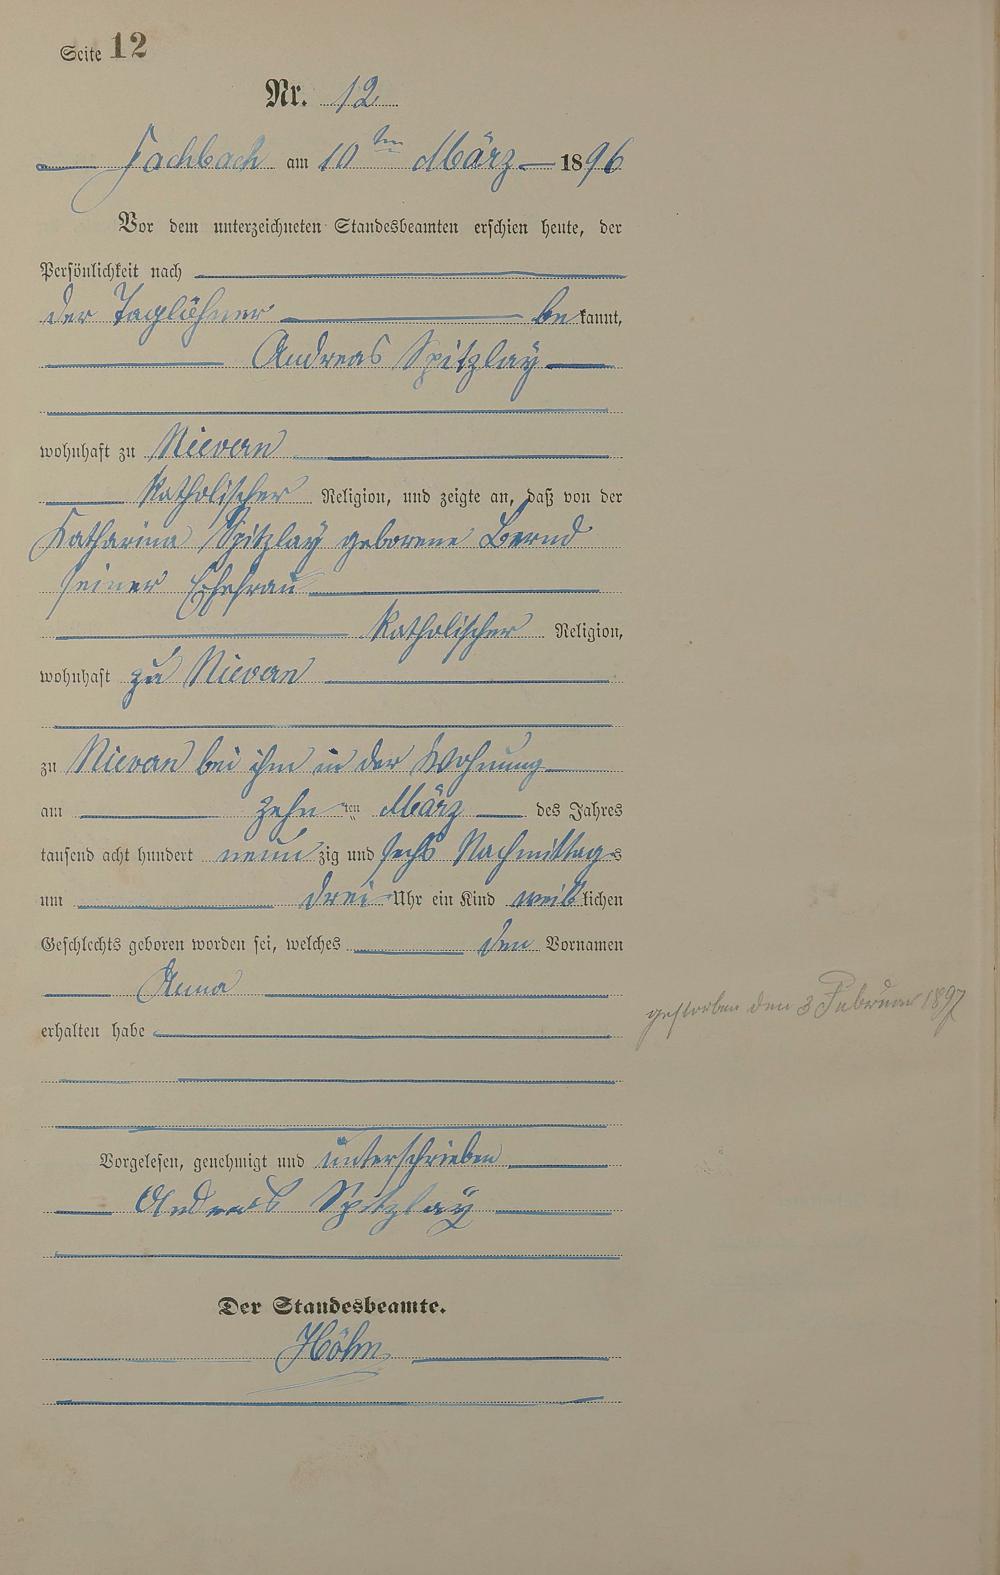 Seite 12
Nr. 12
Fachbach am 10ten März 1896
Vor dem unterzeichneten Standesbeamten erschien heute, der
Persönlichkeit nach
der Taglöhner bekannt,
Andreas Spitzlay
wohnhaft zu Nievern
katholischer Religion, und zeigte an, daß von der
Katharina Spitzlay geborene Bernd
seiner Ehefrau
katholischer Religion,
wohnhaft zu Nievern
zu Nievern bei ihm in der Wohnung
am zehnten März des Jahres
tausend acht hundert neunzig und sechs Nachmittags
um drei Uhr ein Kind weiblichen
Geschlechts geboren worden sei, welches den Vornamen
Anna
erhalten habe
gestorben den 3 Februar 1897
Vorgelesen, genehmigt und unterschrieben
Andreas Spitzlay
Der Standesbeamte.
Höhn